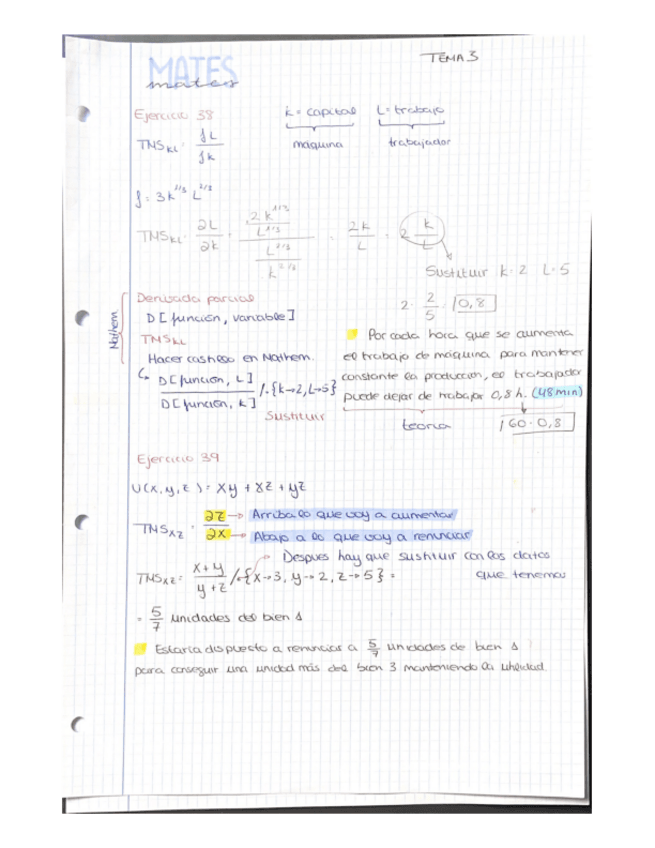 TEMA 3
MATES
mates
Ejercicio 38
k = capital   L = trabajo
máquina   trabajador
TMS KL = fL / fk
f = 3k^1/3 L^2/3
TMS KL = ∂L / ∂k = (2k^1/3 / L^1/3) / (L^2/3 / k^2/3) = 2k / L = 2 k/L
Sustituir k=2 L=5
2 · 2/5 = 0,8
Derivada parcial
D[función, variable]
TMS KL
Hacer cachesο en Mathem.
D[función, L] / D[función, k] /.{k→2, L→5}
Sustituir
Mathem
Por cada hora que se aumenta
el trabajo de máquina para mantener
constante la producción, el trabajador
puede dejar de trabajar 0,8h. (48 min)
teoría   60·0,8
Ejercicio 39
U(x,y,z) = xy + xz + yz
TMS XZ = ∂z / ∂x
→ Arriba lo que voy a aumentar
→ Abajo a lo que voy a renunciar
→ Despues hay que sustituir con los datos
que tenemos
TMS XZ = x+y / y+z /.{x→3, y→2, z→5} =
= 5/7 unidades del bien 1
Estaría dispuesto a renunciar a 5/7 unidades de bien 1
para conseguir una unidad más del bien 3 manteniendo la utilidad.